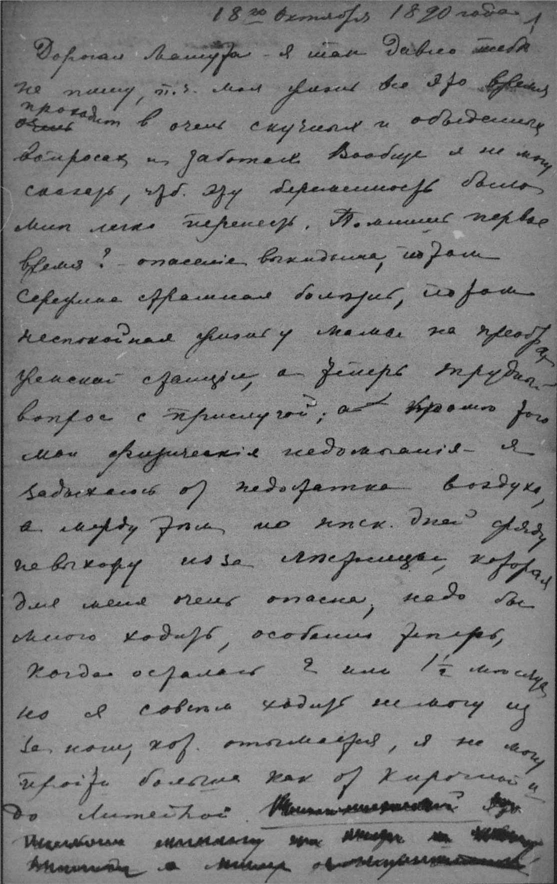 18го октября 1890 года
Дорогая Машура - я так давно тебѣ
не пишу, т.ч. моя жизнь все это время
проходит
в очень скучных и обыденных
вопросах и заботах. Вообще я не могу
сказать, чтб. эту беременность было
мнѣ легко перенесть. Помнишь первое
время? - опасеніе выкидыша, потом
середина страшная болѣзнь, потом
неспокойная жизнь у мамы на преобра-
женской станціи, а теперь трудный
вопрос с прислугой; а кромѣ того
мои физическія недомоганія - я
задыхаюсь от недостатка воздуха,
а между тѣм по нѣск. дней сряду
не выхожу из за лѣстницы, которая
для меня очень опасна, надо бы
много ходить, особенно теперь,
когда осталось 2 или 1 1/2 мѣсяца,
но я совсѣм ходить не могу из
за ноги, кот. отымается, я не могу
пройти больше как от Кирочной
до Литейной